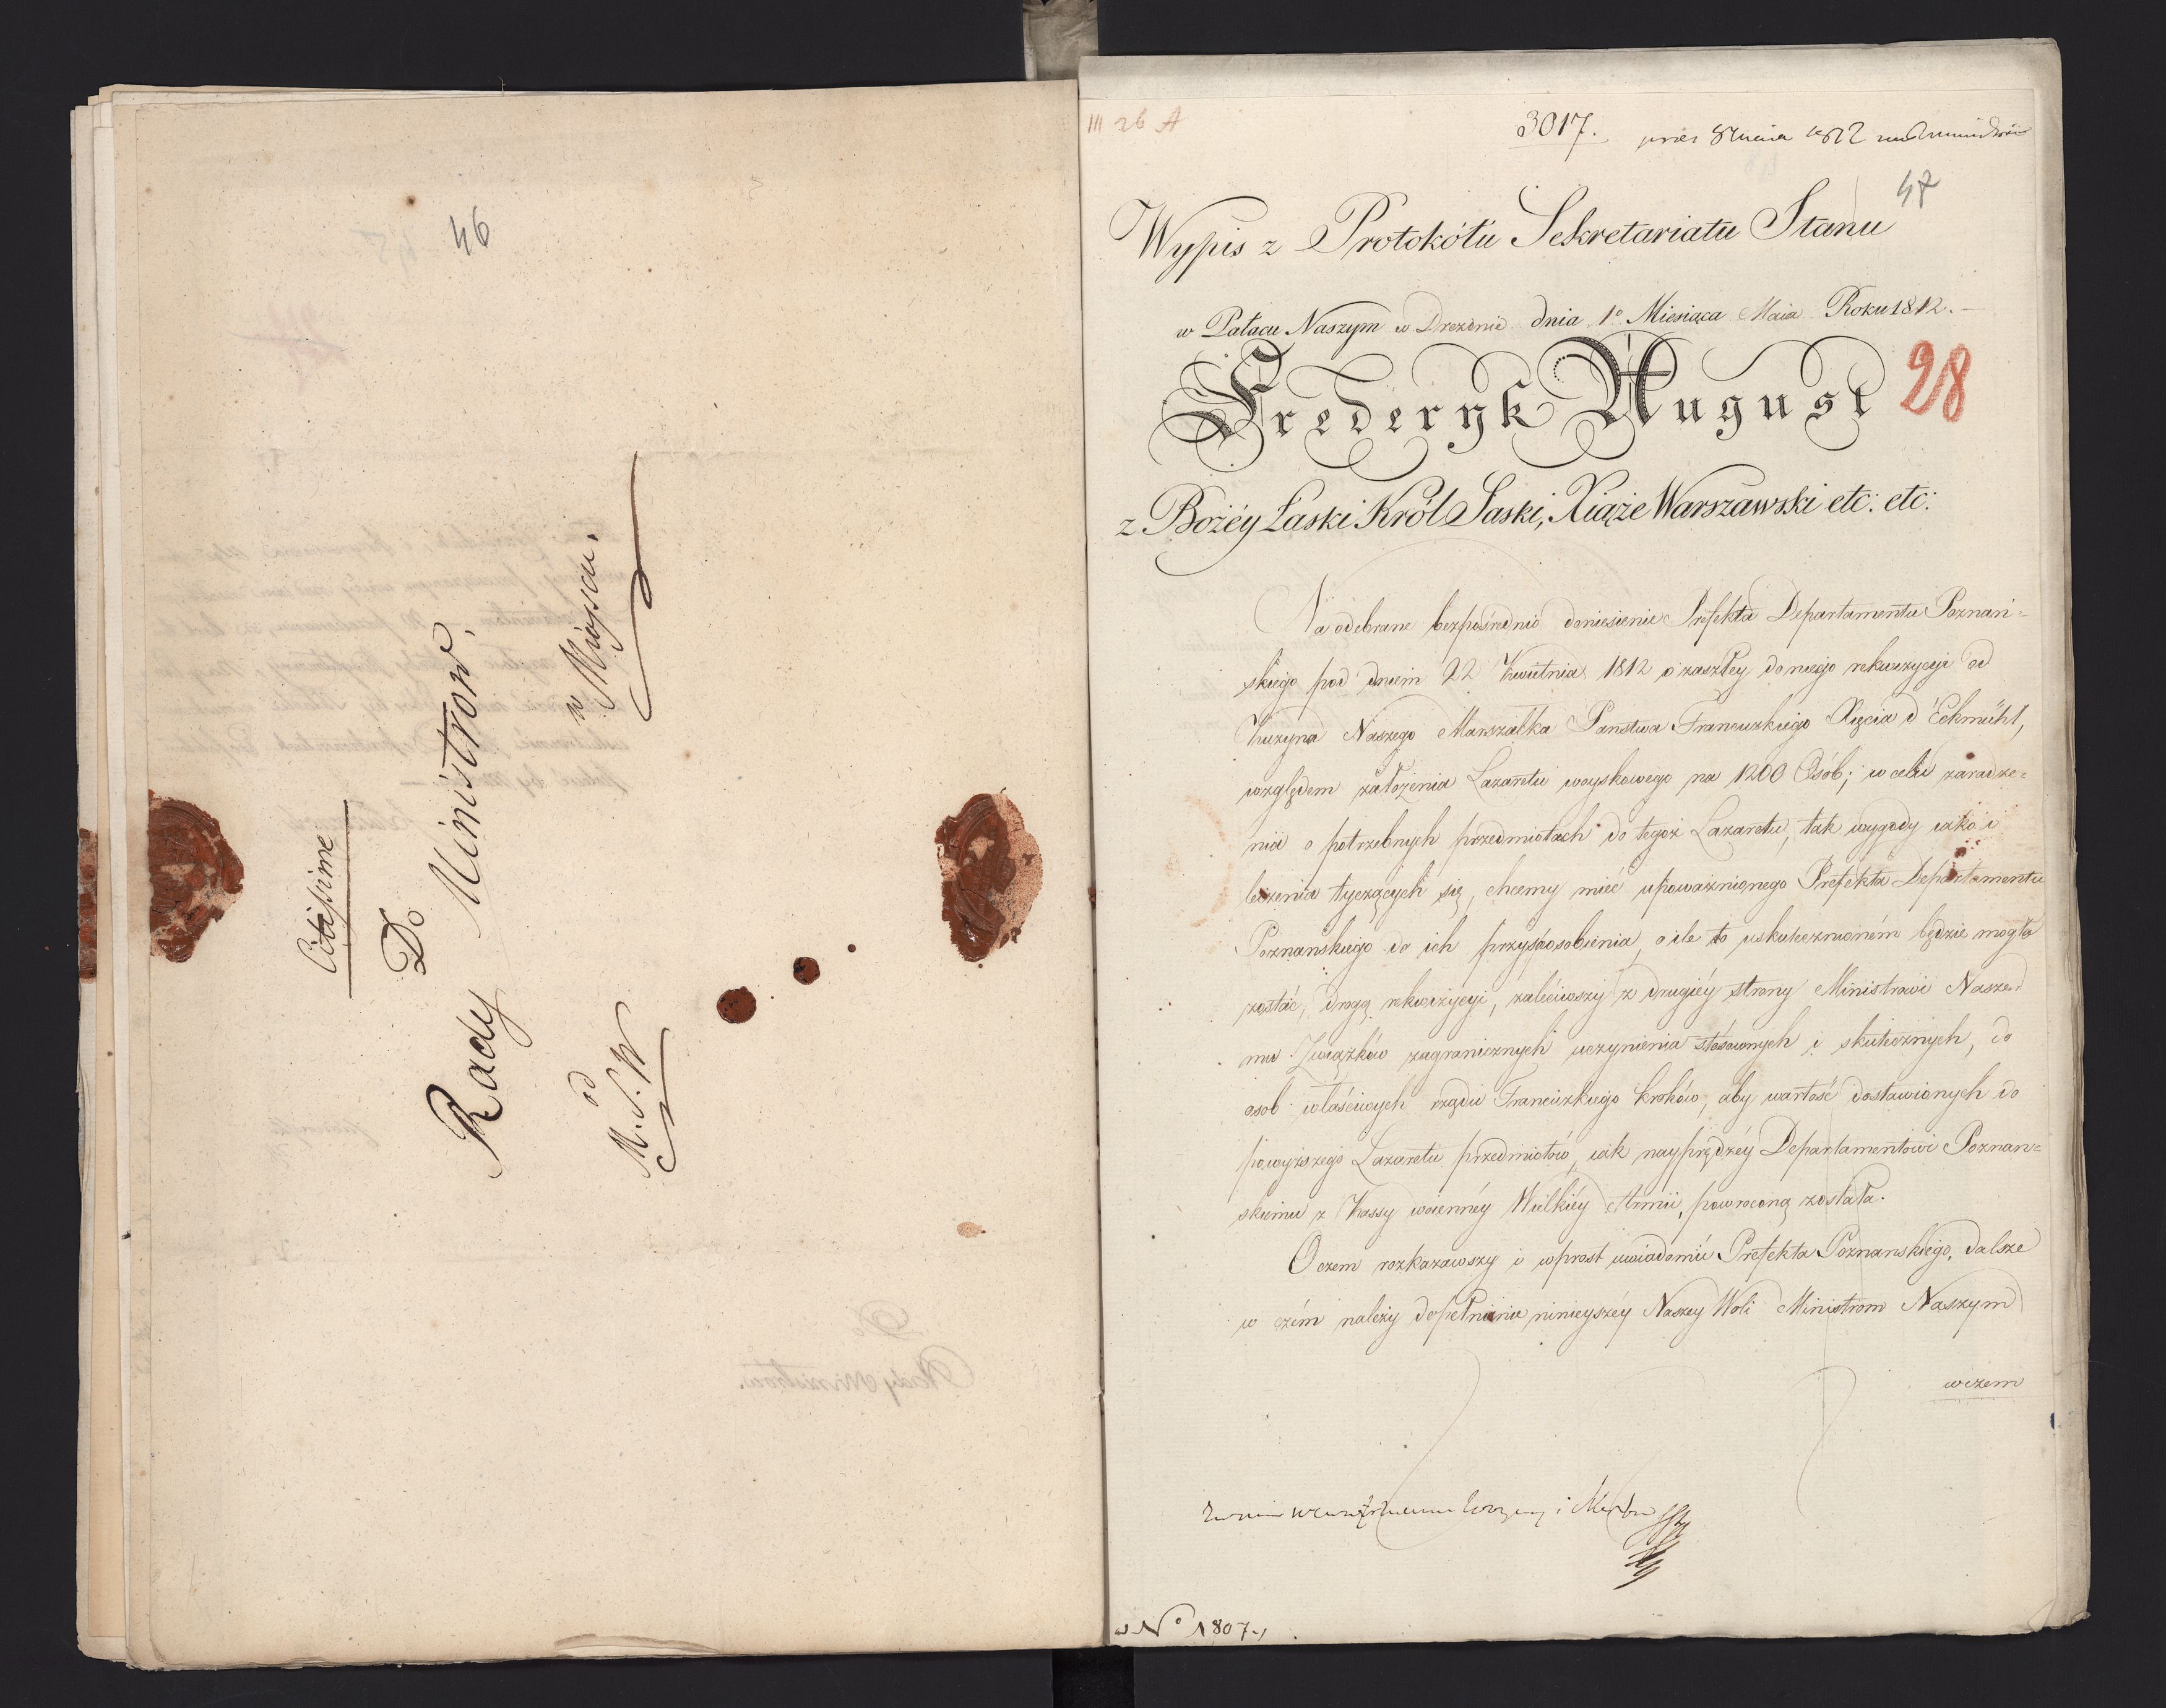 46
Citissime
Do
Rady Ministrow,
w Mieyscu.
od
M. S. W
III 26 A
3017.
47
Wypis z Protokółu Sekretariatu Stanu
w Pałacu Naszym w Dreznie dnia 1º Miesiąca Maia Roku 1812. —
Frederyk August
28
z Bożéy Łaski Król Saski, Xiąże Warszawski etc: etc:
Na odebrane bezpośrednio doniesienie Prefekta Departamentu Poznań=
skiego pod dniem 22 Kwietnia 1812 o zaszłey do niego rekwizycyi od
Kuzyna Naszego Marszałka Państwa Francuzkiego Xięcia d'Eckmühl,
względem założenia Lazaretu woyskowego na 1200 Osób; w celu zaradze=
nia o potrzebnych przedmiotach do tegoż Lazaretu, tak wygody iako i
leczenia tyczących się, chcemy mieć upoważnionego Prefekta Departamentu
Poznanskiego do ich przysposobienia, o ile to uskutecznioném będzie mogło
zostać, drogą rekwizycyi, zaleciwszy z drugiéy strony Ministrowi Nasze=
mu Związków zagranicznych uczynienia stósownych i skutecznych, do
osob właściwych rządu Francuzkiego kroków, aby wartość dostawionych do
powyższego Lazaretu przedmiotów, iak nayprędzéy Departamentowi Poznan=
skiemu z Kassy woienney Wielkiéy Armii, powroconą została.
O czem rozkazawszy i wprost uwiadomić Prefekta Poznanskiego, dalsze
w czém należy dopełnienie ninieyszéy Naszey Woli Ministrom Naszym
w czem
Nº 1807